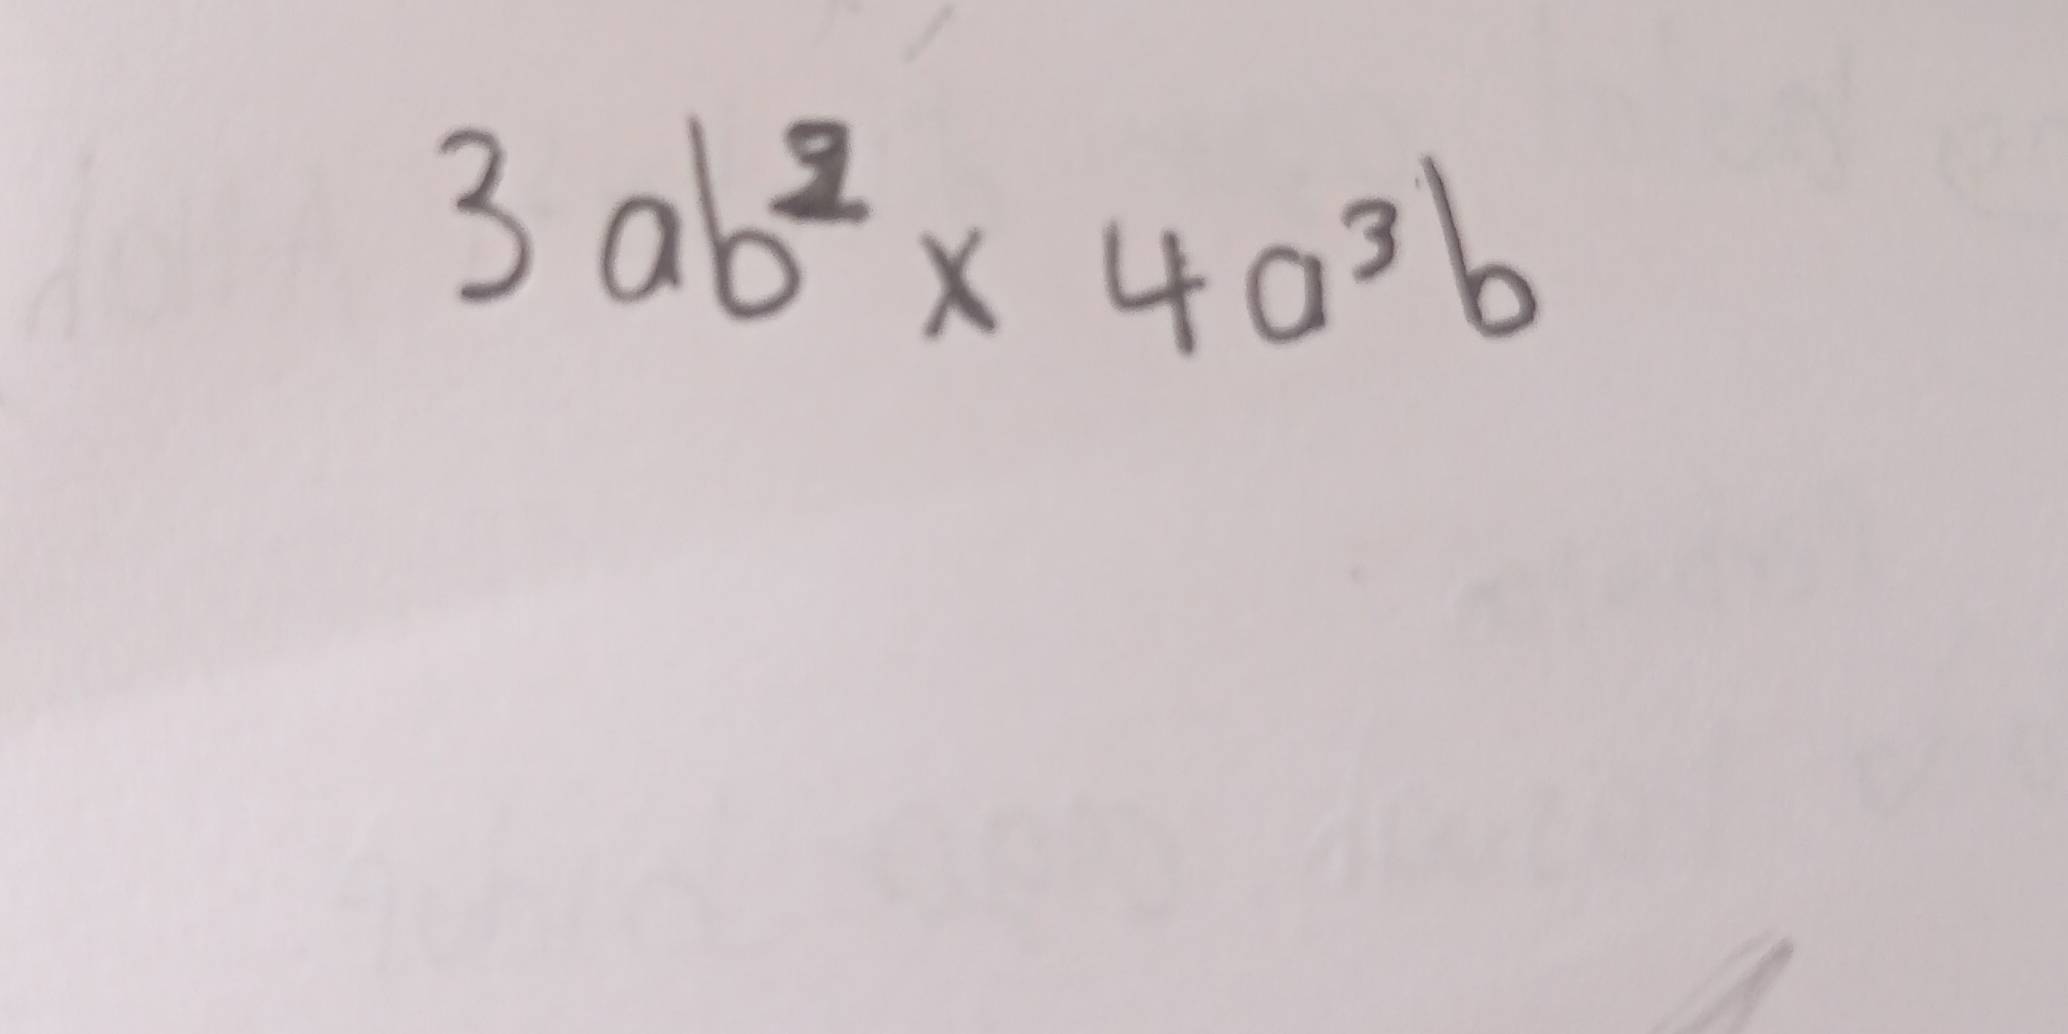 3ab² x 4a³b